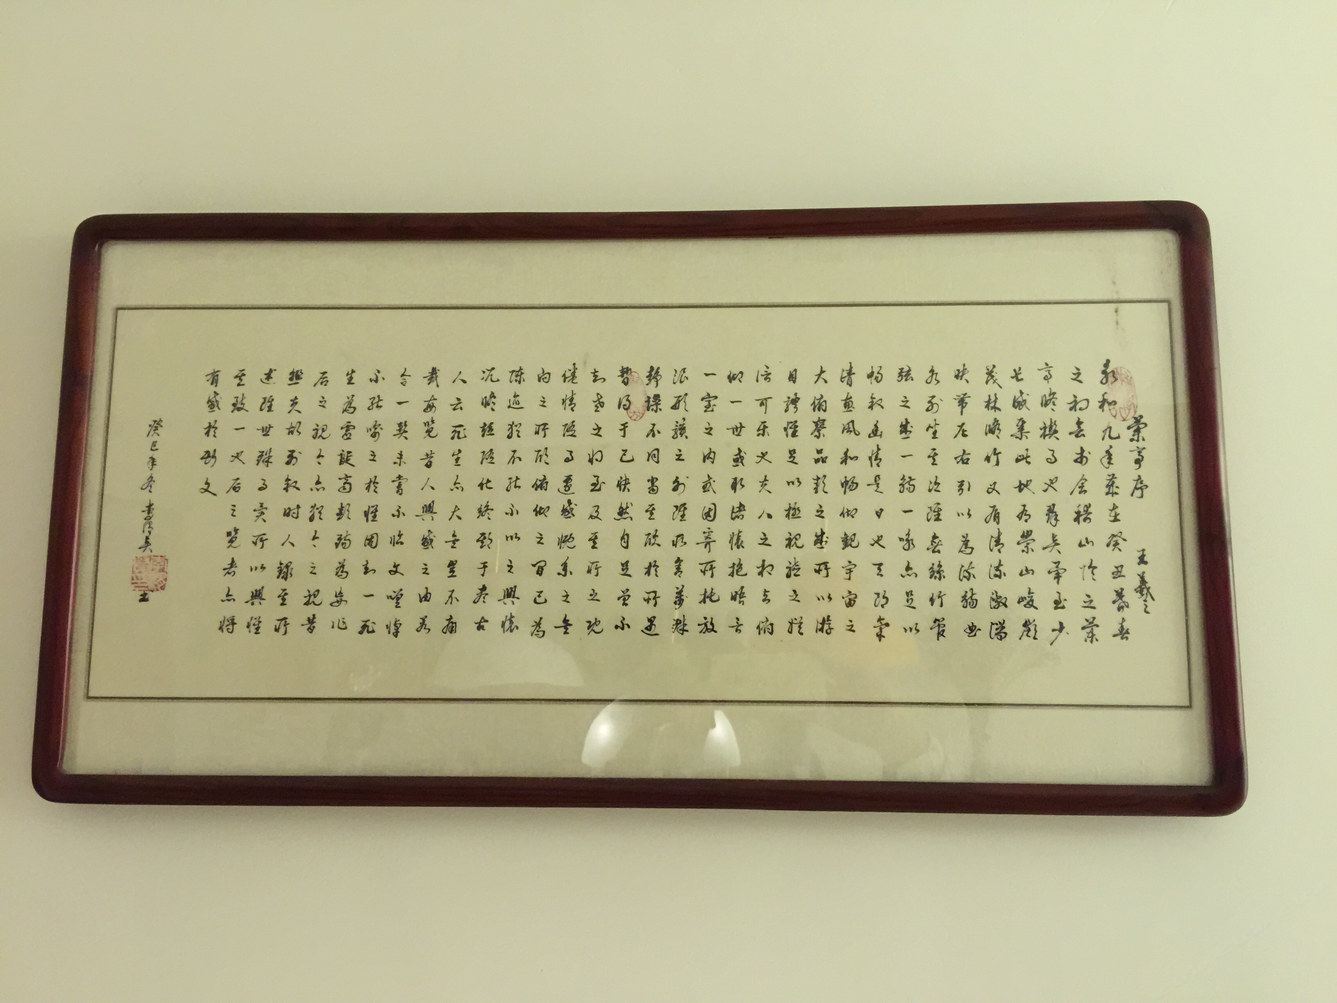 蘭亭序 王羲之
永和九年歲在癸丑暮春
之初會於會稽山陰之蘭
亭脩禊事也群賢畢至少
長咸集此地有崇山峻領
茂林脩竹又有清流激湍
映帶左右引以為流觴曲
水列坐其次雖無絲竹管
弦之盛一觴一詠亦足以
暢敘幽情是日也天朗氣
清惠風和暢仰觀宇宙之
大俯察品類之盛所以遊
目騁懷足以極視聽之娛
信可樂也夫人之相與俯
仰一世或取諸懷抱晤言
一室之內或因寄所托放
浪形骸之外雖取舍萬殊
靜躁不同當其欣於所遇
暫得于己快然自足曾不
知老之將至及其所之既
倦情隨事遷感慨系之矣
向之所欣俯仰之間已為
陳迹猶不能不以之興懷
況脩短隨化終期于盡古
人云死生亦大矣豈不痛
哉每覽昔人興感之由若
合一契未嘗不臨文嗟悼
不能喻之於懷固知一死
生為虛誕齊彭殤為妄作
后之視今亦猶今之視昔
悲夫故列敘時人錄其所
述雖世殊事異所以興懷
其致一也后之覽者亦將
有感於斯文
癸巳年冬